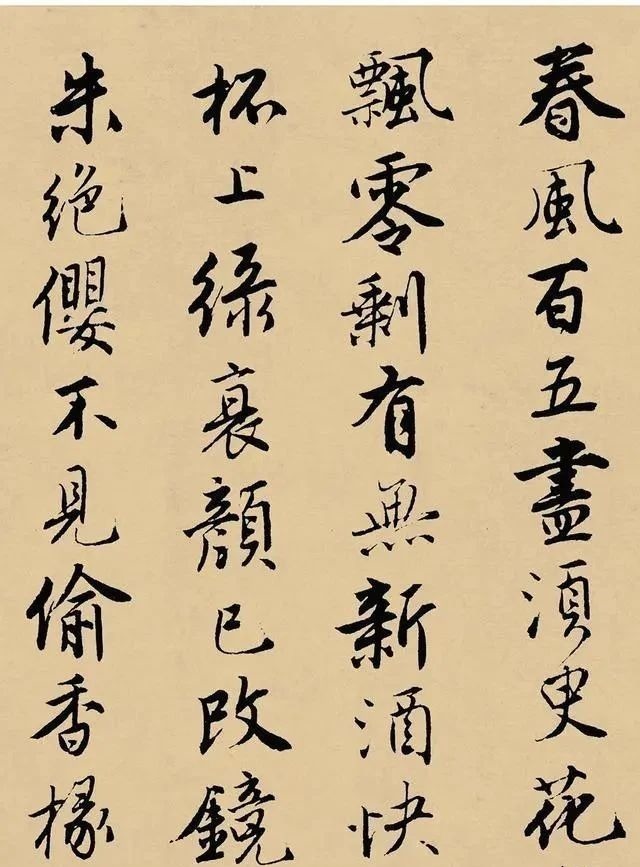 春風百五盡須臾花
飄零剩有無新酒快
杯上綠衰顏已改鏡
朱絕纓不見偷香椽